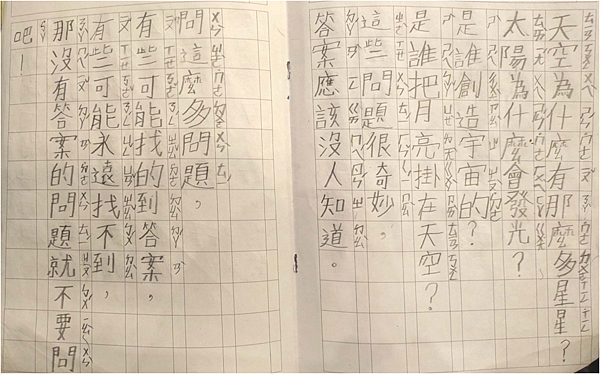 天空為什麼有那麼多星星？
太陽為什麼會發光？
是誰創造宇宙的？
是誰把月亮掛在天空？
這些問題很奇妙，
答案應該沒人知道。
問這麼多問題，
有些可能找的到答案，
有些可能永遠找不到，
那沒有答案的問題就不要問
吧！